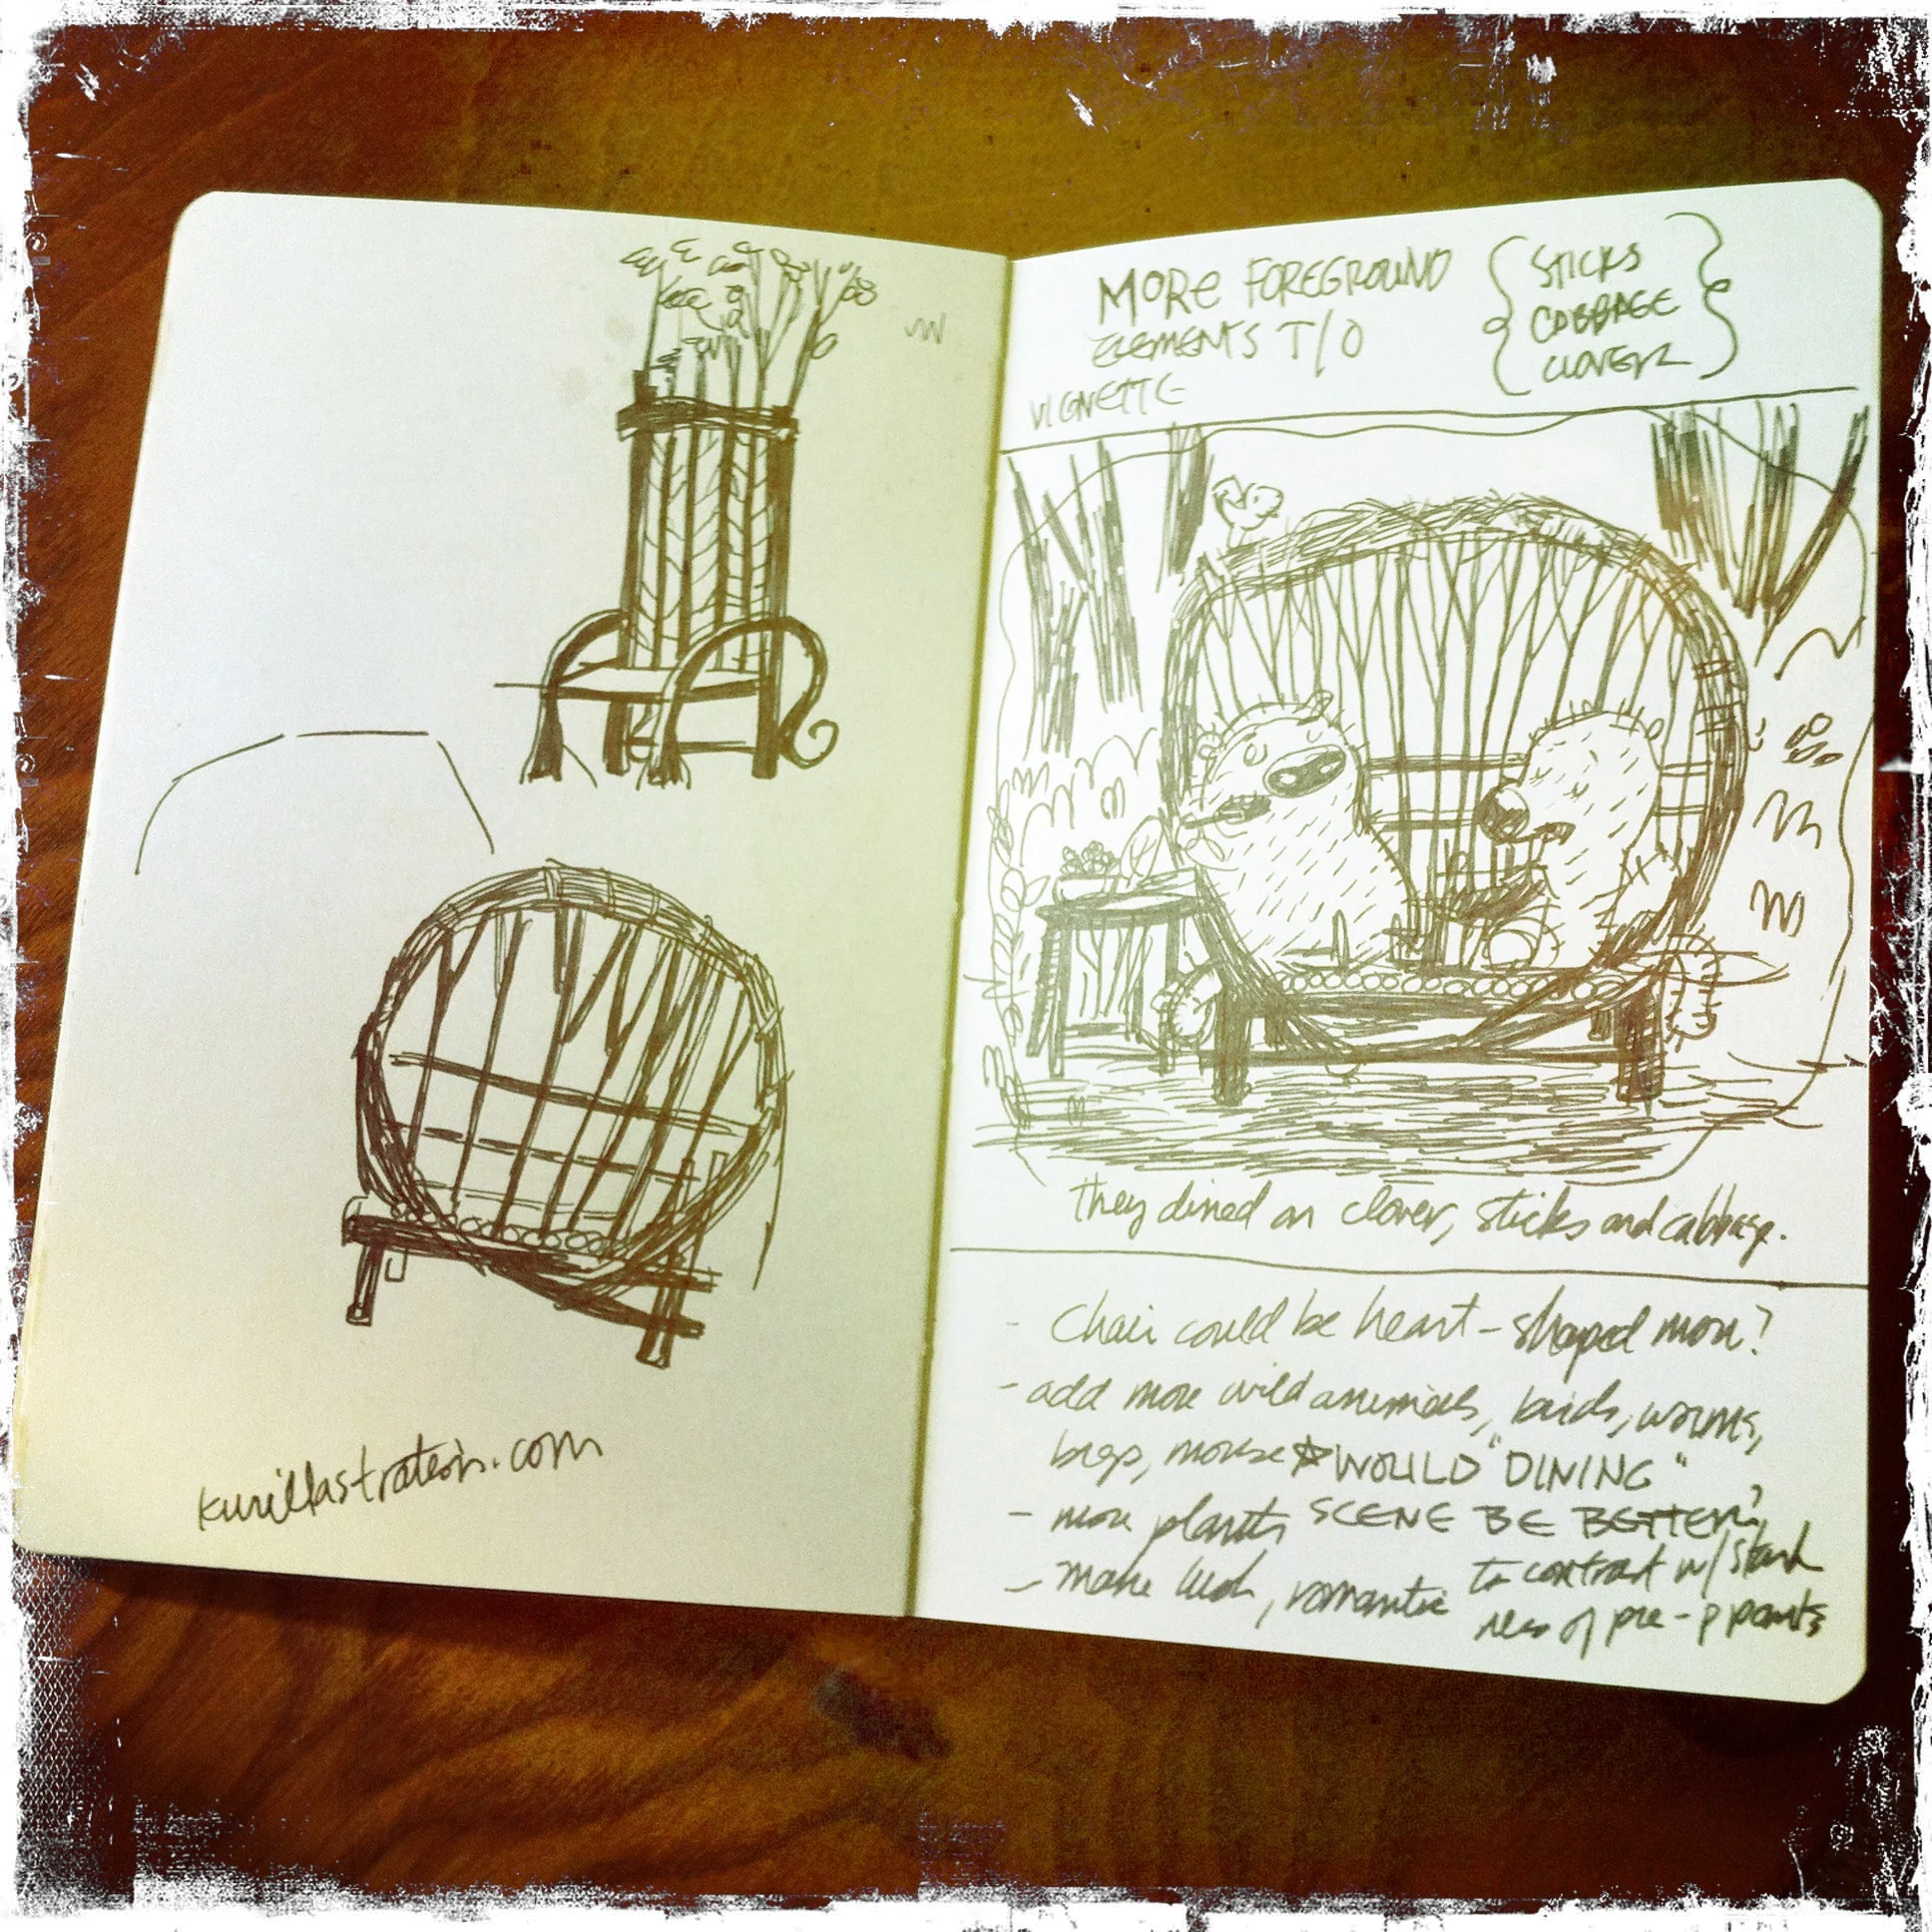 kurillustration.com
MORE FOREGROUND
ELEMENTS T/O
VIGNETTE
STICKS
CABBAGE
CLOVER
they dined on clover, sticks and cabbage.
- Chair could be heart-shaped more?
- add more wild animals, birds, worms,
bugs, mouse ☆ WOULD "DINING"
- more plants SCENE BE BETTER?
- make lush, romantic to contrast w/ stark
ness of pre-p pants